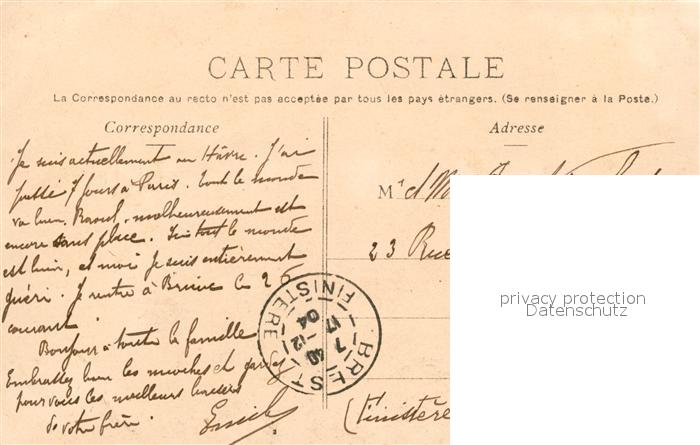 CARTE POSTALE
La Correspondance au recto n'est pas acceptée par tous les pays étrangers. (Se renseigner à la Poste.)
Correspondance
Adresse
Je suis actuellement au Hâvre. J'ai
passé 7 jours à Paris. Tout le monde
va bien, Raoul, malheureusement est
encore sans place. Ici tout le monde
est bien, et moi je suis entièrement
guéri. Je rentre à le 26
courant.
Bonjour à toute la famille
Embrassez bien les mioches et gardez
pour vous les meilleurs baisers
de votre frère.
Emile
BREST
FINISTERE
7 40
17 -12
04
M. et Mme
23 Rue
(Finistère
privacy protection
Datenschutz